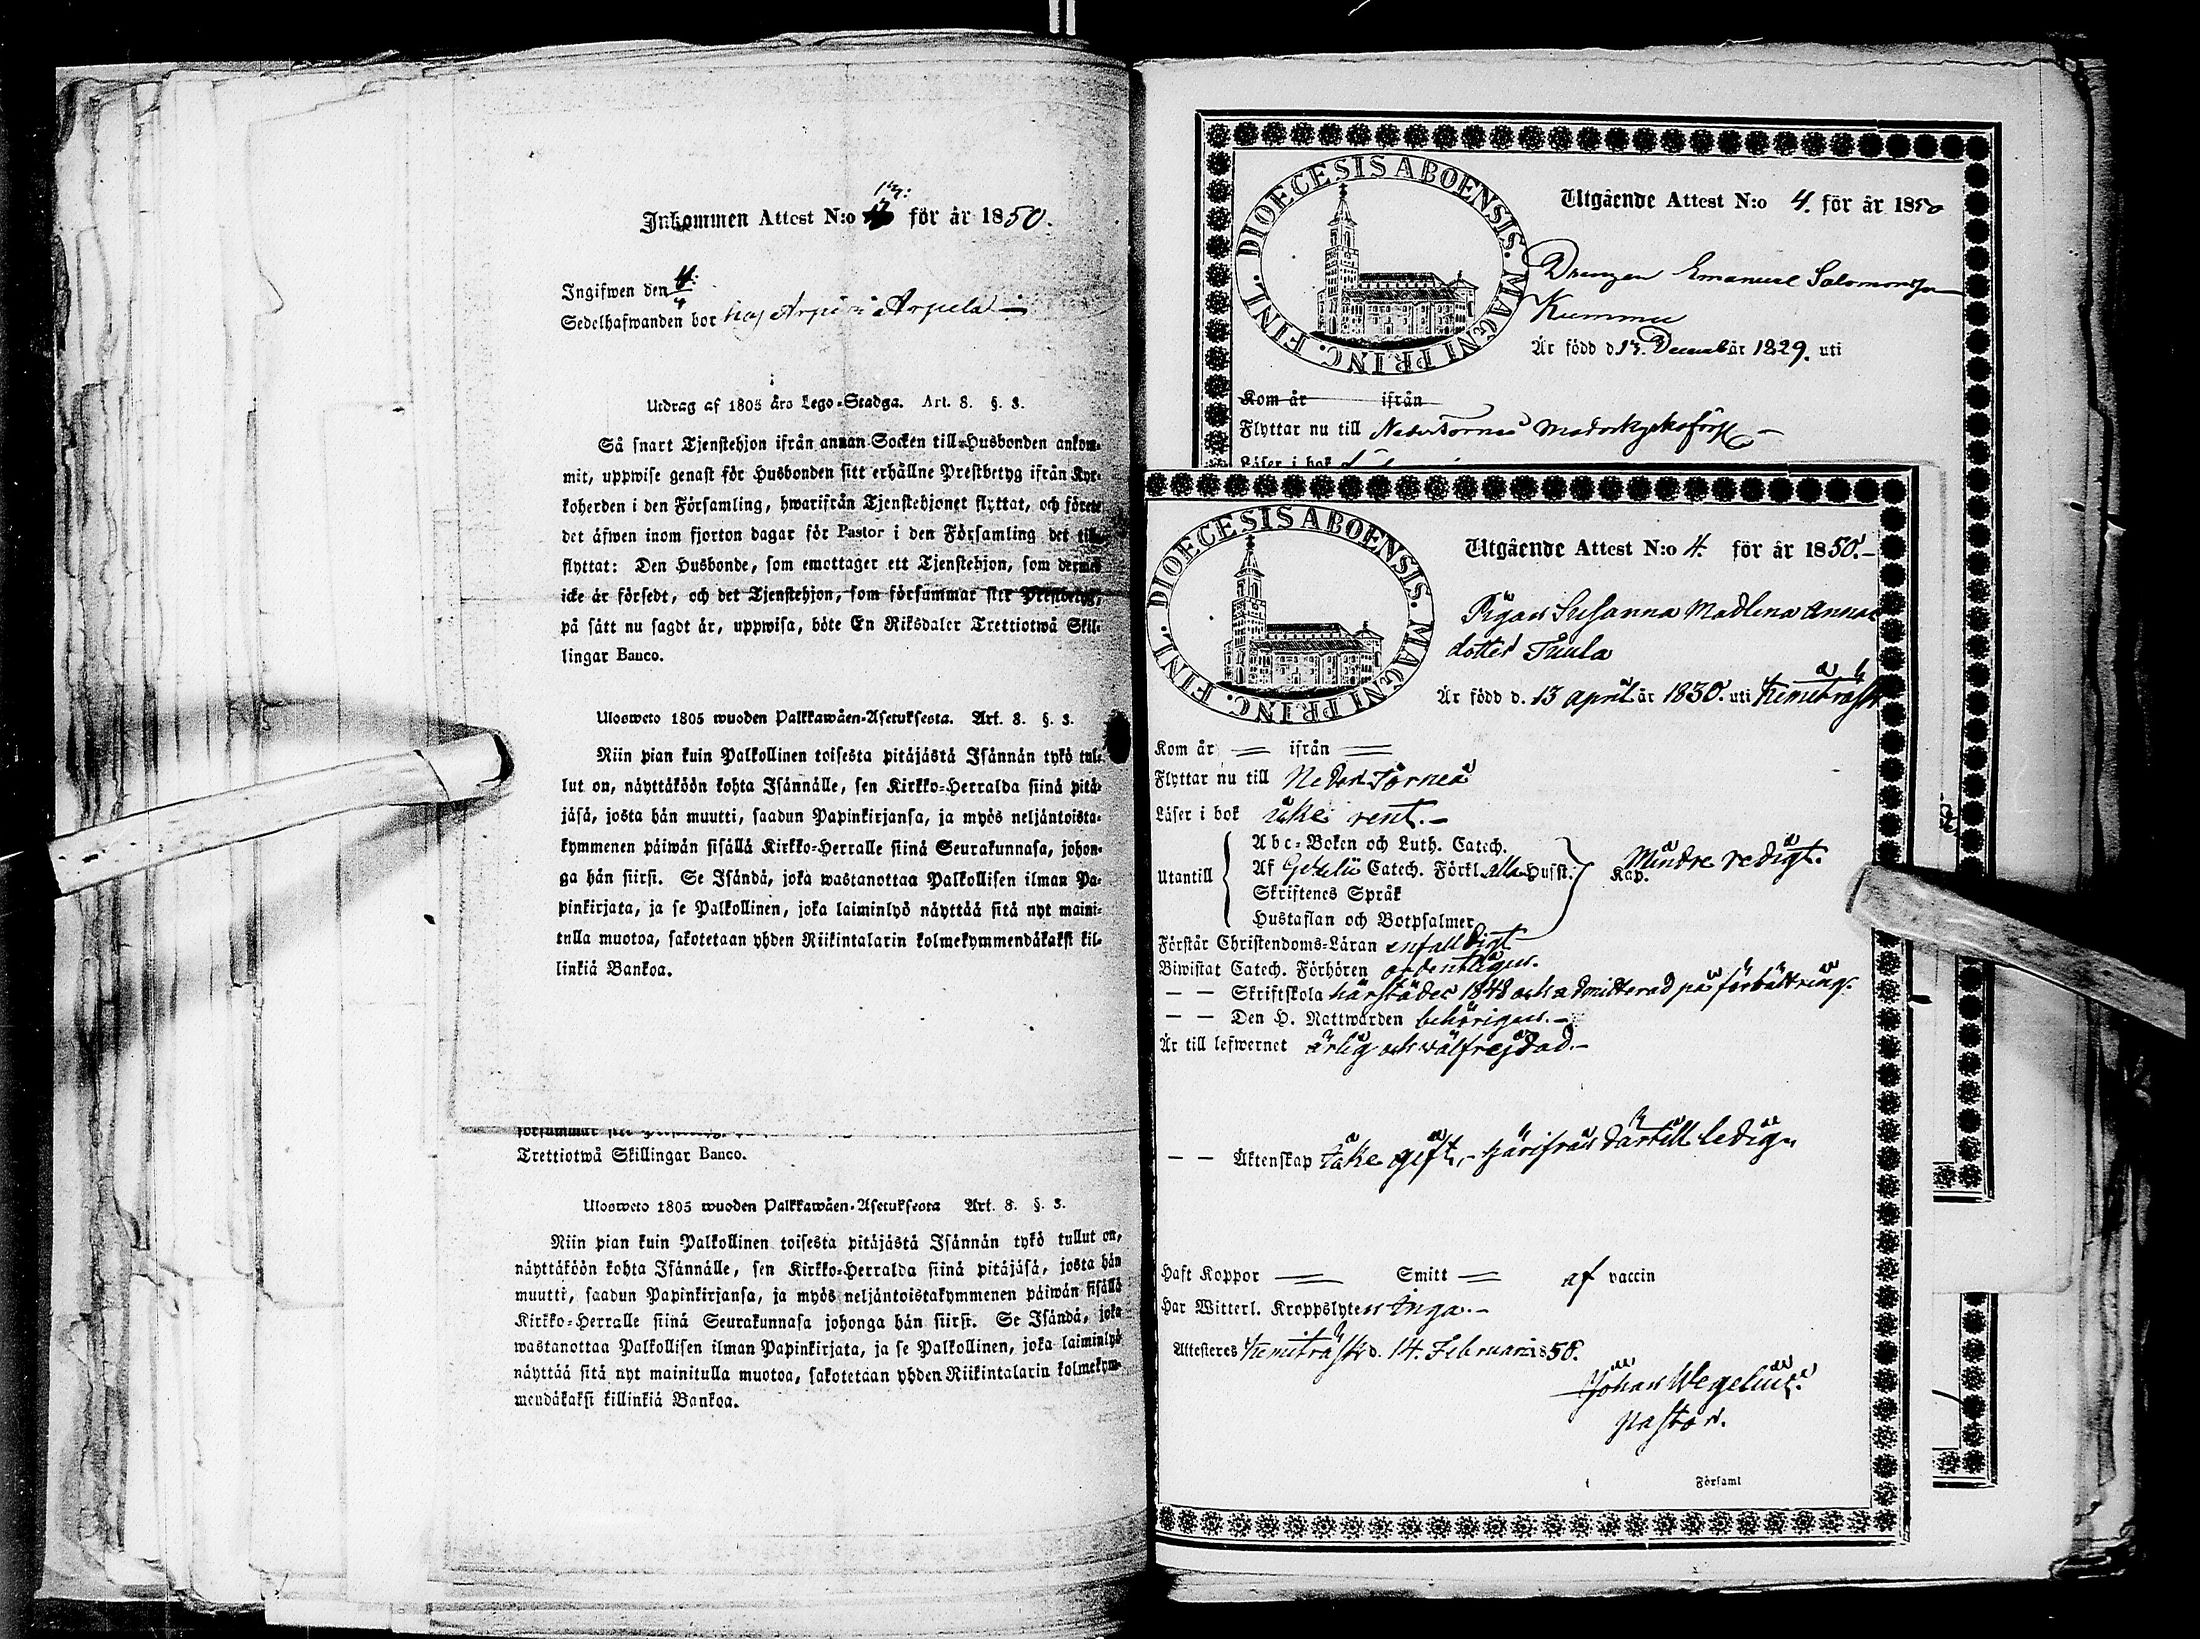 Inkommen Attest N:o för år 1850.
Ingifwen den
Sedelhafwanden bor hos Arpi i Arpela
Utdrag af 1805 års Lego-Stadga. Art. 8. §. 3.
Så snart Tjenstehjon ifrån annan Socken till Husbonden ankom-
mit, uppwise genast för Husbonden sitt erhållne Prestbetyg ifrån Kyr-
koherden i den Församling, hwarifrån Tjenstehjonet flyttat, och förete
det äfwen inom fjorton dagar för Pastor i den Församling det till-
flyttat: Den Husbonde, som emottager ett Tjenstehjon, som dermed
icke är försedt, och det Tjenstehjon, som försummar sitt Prestbetyg,
på sätt nu sagdt är, uppwisa, böte En Riksdaler Trettiotwå Skil-
lingar Banco.
Ulosweto 1805 wuoden Palkkawäen-Asetuksesta. Art. 8. §. 3.
Niin pian kuin Palkollinen toisesta pitäjästä Isännän tykö tul-
lut on, näyttäköön kohta Isännälle, sen Kirkko-Herralda siinä pitä-
jäsä, josta hän muutti, saadun Papinkirjansa, ja myös neljäntoista-
kymmenen päiwän sisällä Kirkko-Herralle siinä Seurakunnasa, johon-
ga hän siirsi. Se Isändä, joka wastanottaa Palkollisen ilman Pa-
pinkirjata, ja se Palkollinen, joka laiminlyö näyttää sitä nyt maini-
tulla muotoa, sakotetaan yhden Riikintalarin kolmekymmendäkaksi kil-
linkiä Bankoa.
försummar sitt
Trettiotwå Skillingar Banco.
Ulosweto 1805 wuoden Palkkawäen-Asetuksesta Art. 8. §. 3.
Niin pian kuin Palkollinen toisesta pitäjästä Isännän tykö tullut on,
näyttäköön kohta Isännälle, sen Kirkko-Herralda siinä pitäjäsä, josta hän
muutti, saadun Papinkirjansa, ja myös neljäntoistakymmenen päiwän sisällä
Kirkko-Herralle siinä Seurakunnasa johonga hän siirsi. Se Isändä, joka
wastanottaa Palkollisen ilman Papinkirjata, ja se Palkollinen, joka laiminlyö
näyttää sitä nyt mainitulla muotoa, sakotetaan yhden Riikintalarin kolmekym-
mendäkaksi killinkiä Bankoa.
DIOECESIS ABOENSIS. MAGNI PRINC. FINL.
Utgående Attest N:o 4. för år 1850
Drengen Emanuel Salomonsson
Kummu
Är född d. 13. December år 1829. uti
Kom år ifrån
Flyttar nu till Neder Torneå Moderkyrkoförs.
Läser i bok
DIOECESIS ABOENSIS. MAGNI PRINC. FINL.
Utgående Attest N:o 4. för år 1850.
Pigan Susanna Madlena Annas
dotter Tuula
Är född d. 13 april år 1830. uti Kemiträsk
Kom år ifrån
Flyttar nu till Neder Torneå
Läser i bok icke rent.
Utantill
Abc-Boken och Luth. Catech.
Af Gezelii Catech. Förkl. alla Hufst. Kap.
Skriftenes Språk
Hustaflan och Botpsalmer
Mindre redigt.
Förstår Christendoms-Läran enfalldigt
Biwistat Catech. Förhören ordentligen.
— — Skriftskola härstädes 1848 och admitterad på förbättring.
— — Den H. Nattwarden behörigen.
Är till lefwernet ärlig och wälfrejdad.
— — Äktenskap icke gift, härifrån dertill ledig
Haft Koppor Smitt af vaccin
Har Witterl. Kroppslyten inga.
Attesteres Kemiträsk d. 14. Februarii 1850.
Johan Wegelius.
Pastor.
Församl